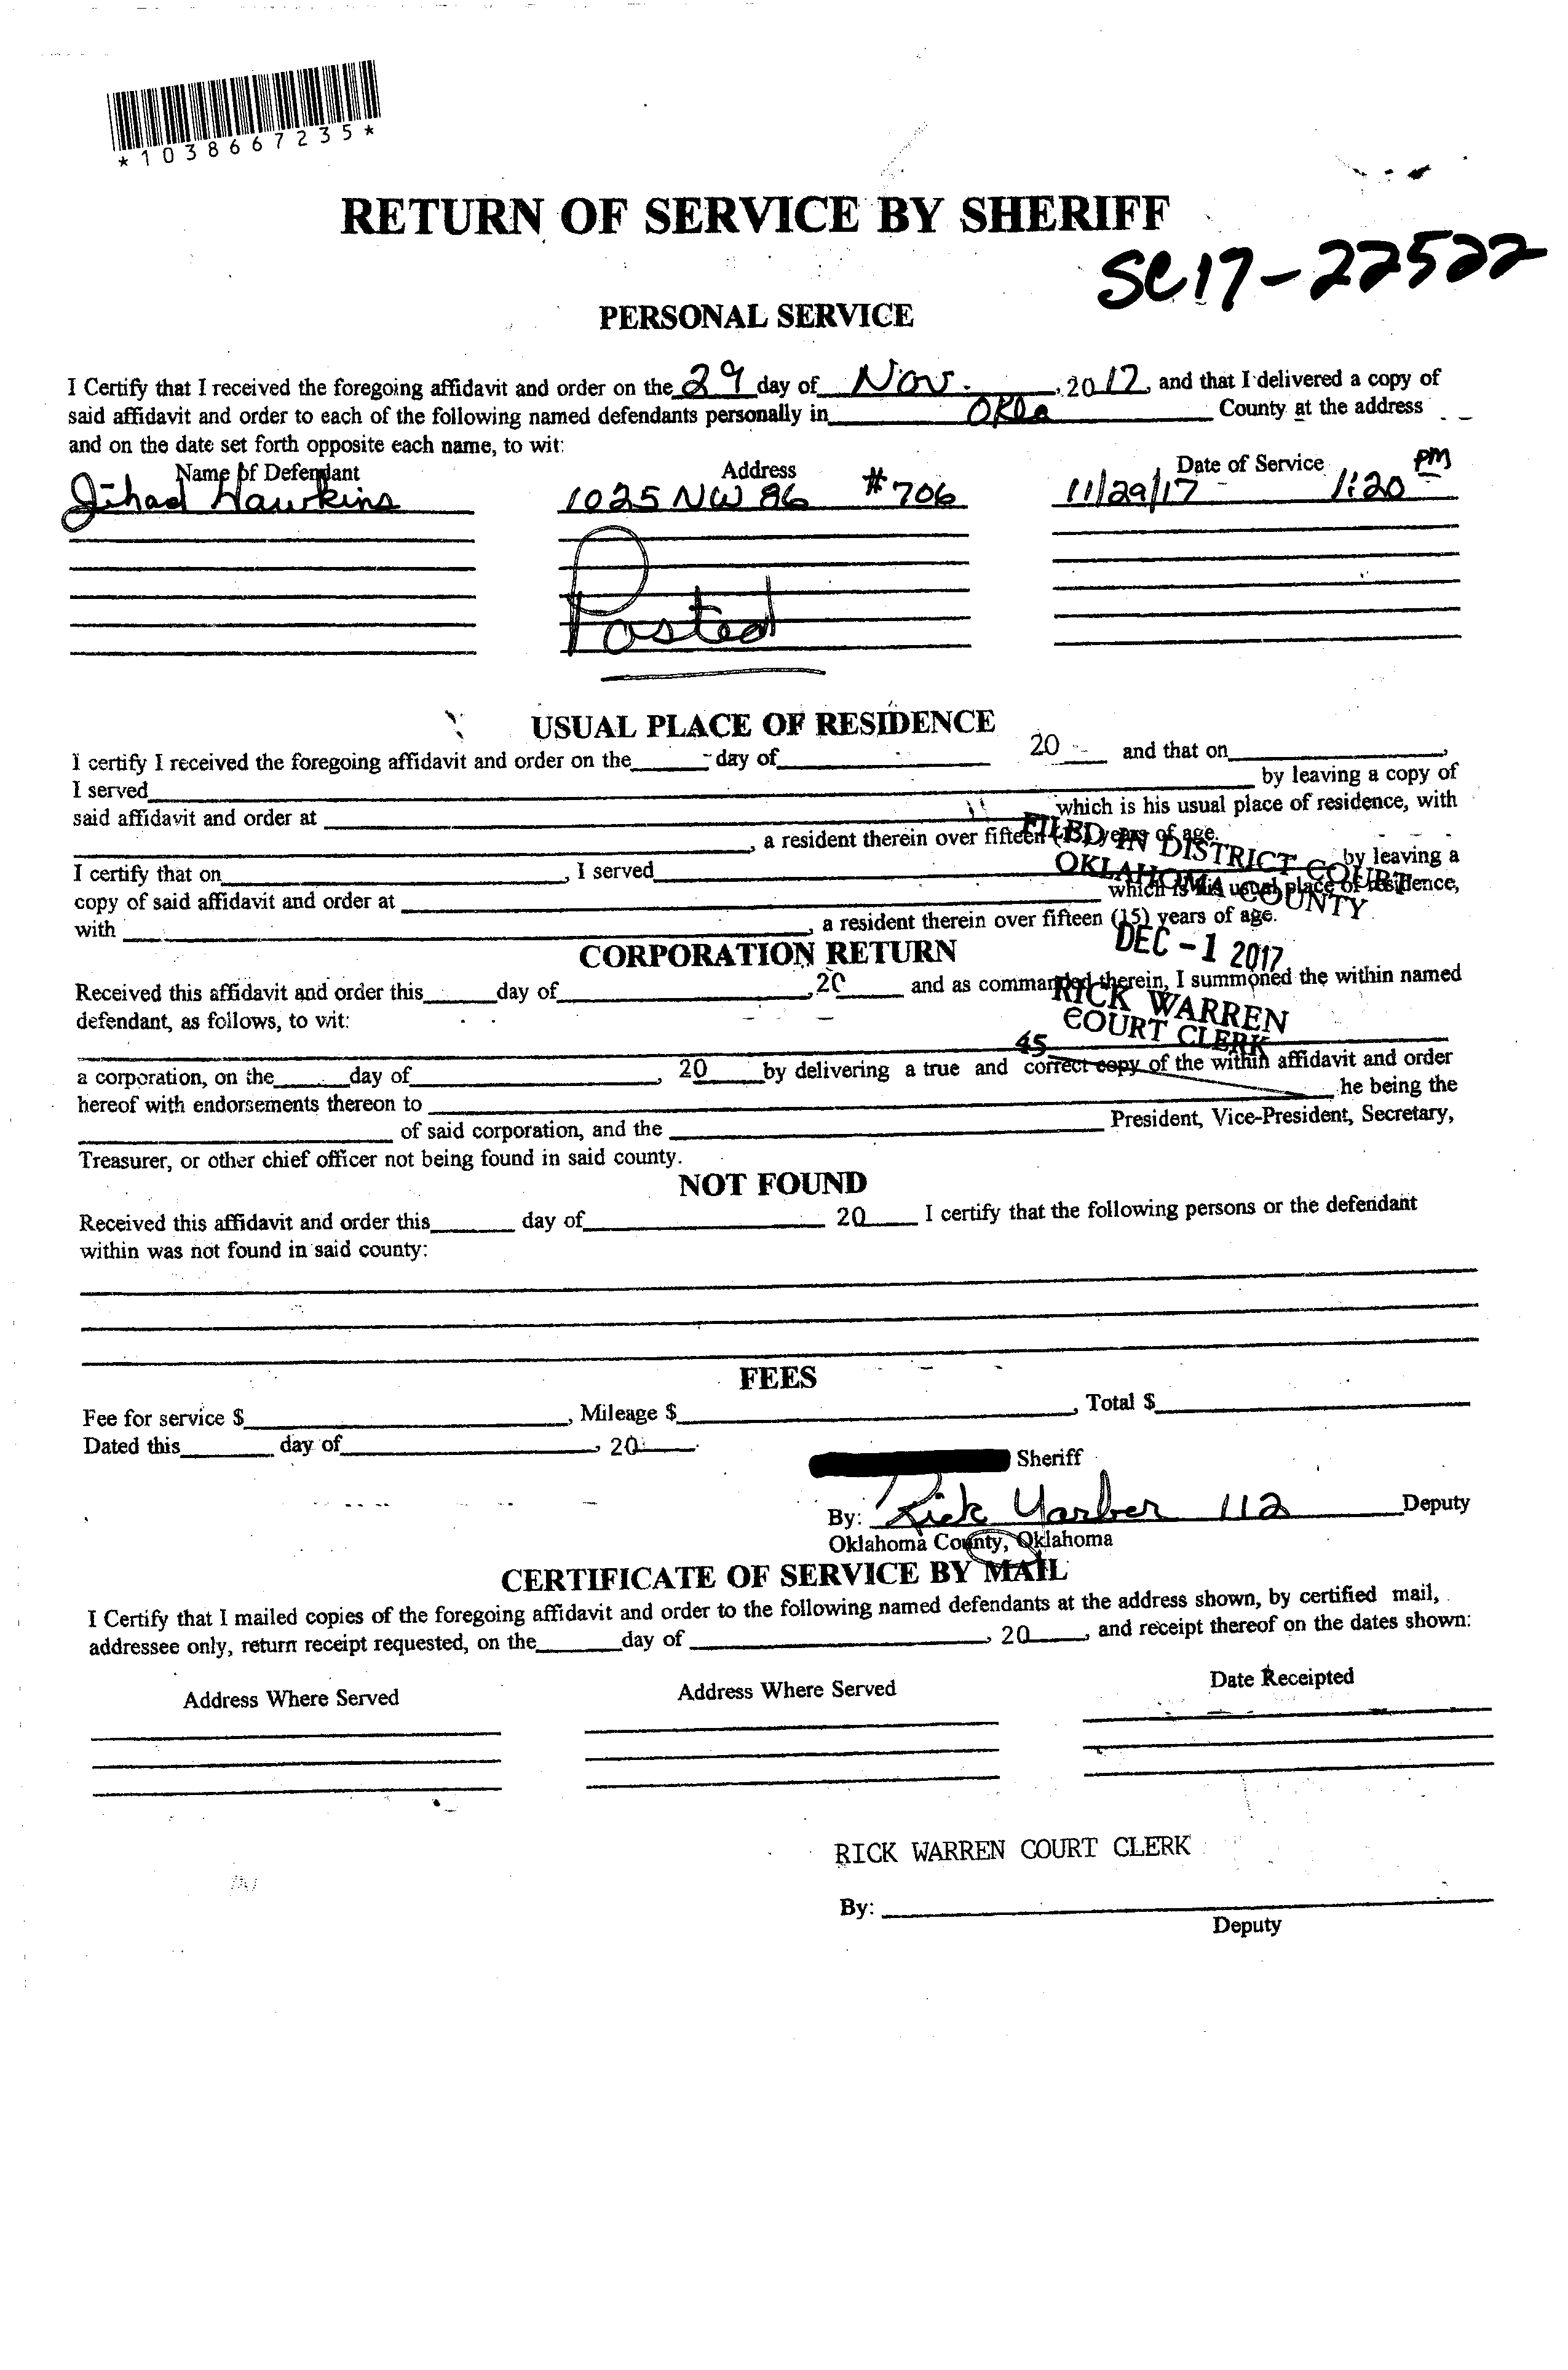 *1038667235*
RETURN OF SERVICE BY SHERIFF
SC17-22522
PERSONAL SERVICE
I Certify that I received the foregoing affidavit and order on the 29 day of Nov. , 2017, and that I delivered a copy of
said affidavit and order to each of the following named defendants personally in Okla County at the address
and on the date set forth opposite each name, to wit:
Name of Defendant Address Date of Service
Jihad Hawkins 1025 NW 86 #706 11/29/17 1:20 PM
Posted
USUAL PLACE OF RESIDENCE
I certify I received the foregoing affidavit and order on the day of 20 and that on ,
I served by leaving a copy of
said affidavit and order at which is his usual place of residence, with
, a resident therein over fifteen (15) years of age.
FILED IN DISTRICT COURT
OKLAHOMA COUNTY
I certify that on , I served by leaving a
copy of said affidavit and order at which is his usual place of residence,
with , a resident therein over fifteen (15) years of age.
DEC -1 2017
CORPORATION RETURN
Received this affidavit and order this day of , 20 and as commanded therein, I summoned the within named
defendant, as follows, to wit:
RICK WARREN
COURT CLERK
45
a corporation, on the day of , 20 by delivering a true and correct copy of the within affidavit and order
hereof with endorsements thereon to he being the
of said corporation, and the President, Vice-President, Secretary,
Treasurer, or other chief officer not being found in said county.
NOT FOUND
Received this affidavit and order this day of 20 I certify that the following persons or the defendant
within was not found in said county:
FEES
Fee for service $ , Mileage $ , Total $
Dated this day of , 20 .
Sheriff
By: Rick Yarber 112 Deputy
Oklahoma County, Oklahoma
CERTIFICATE OF SERVICE BY MAIL
I Certify that I mailed copies of the foregoing affidavit and order to the following named defendants at the address shown, by certified mail,
addressee only, return receipt requested, on the day of , 20 , and receipt thereof on the dates shown:
Address Where Served Address Where Served Date Receipted
RICK WARREN COURT CLERK
By:
Deputy